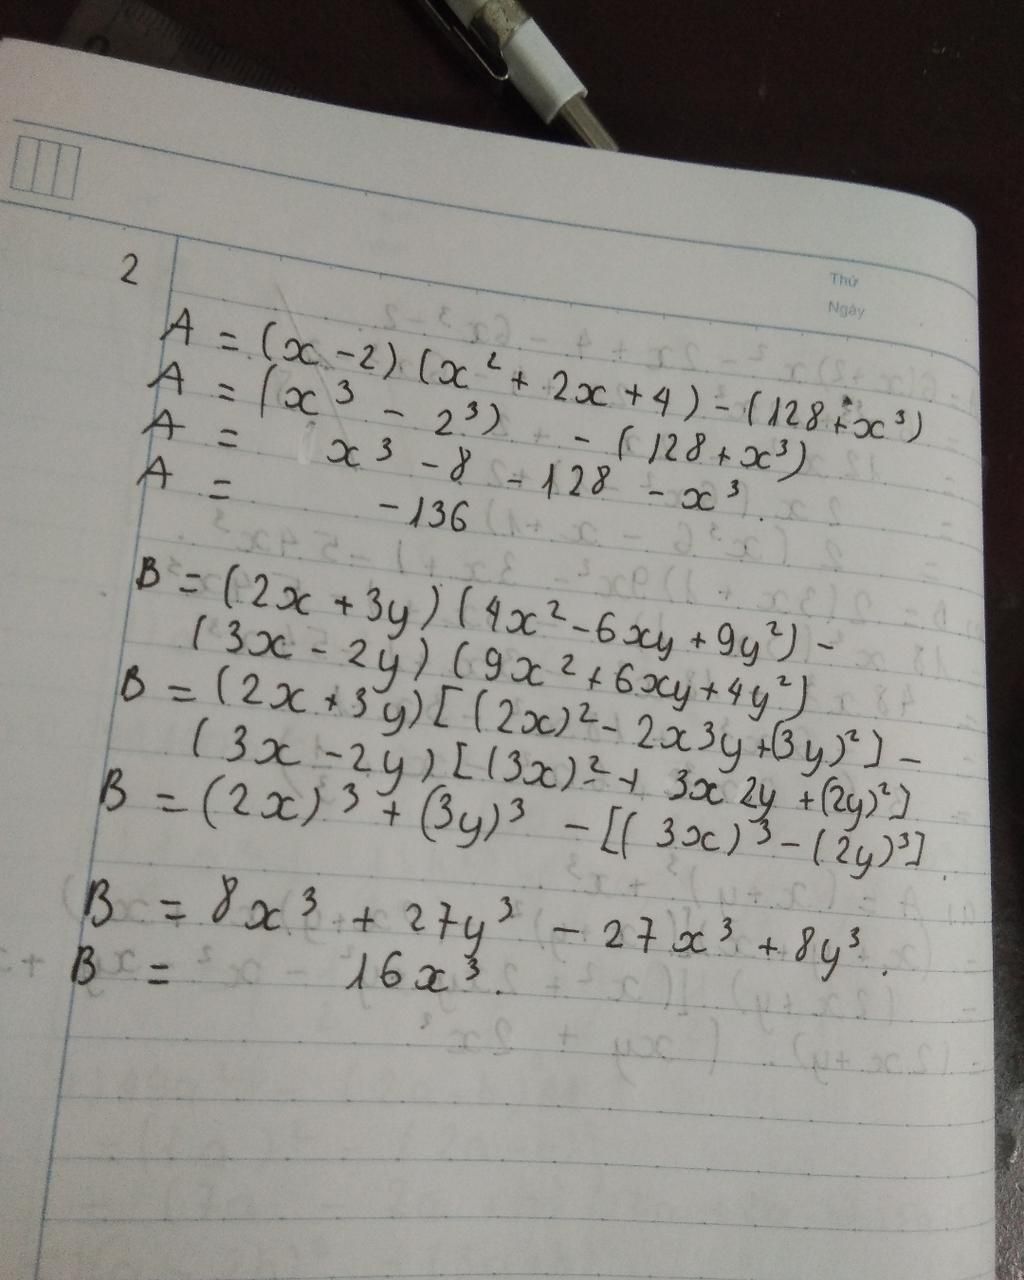 Thứ
Ngày
2
A = (x - 2) (x² + 2x + 4) - (128 + x³)
A = (x³ - 2³) - (128 + x³)
A = x³ - 8 - 128 - x³.
A = -136
B = (2x + 3y) (4x² - 6xy + 9y²) -
(3x - 2y) (9x² + 6xy + 4y²)
B = (2x + 3y) [(2x)² - 2x3y + (3y)²] -
(3x - 2y) [(3x)² + 3x 2y + (2y)²]
B = (2x)³ + (3y)³ - [(3x)³ - (2y)³].
B = 8x³ + 27y³ - 27x³ + 8y³.
B = 16x³.